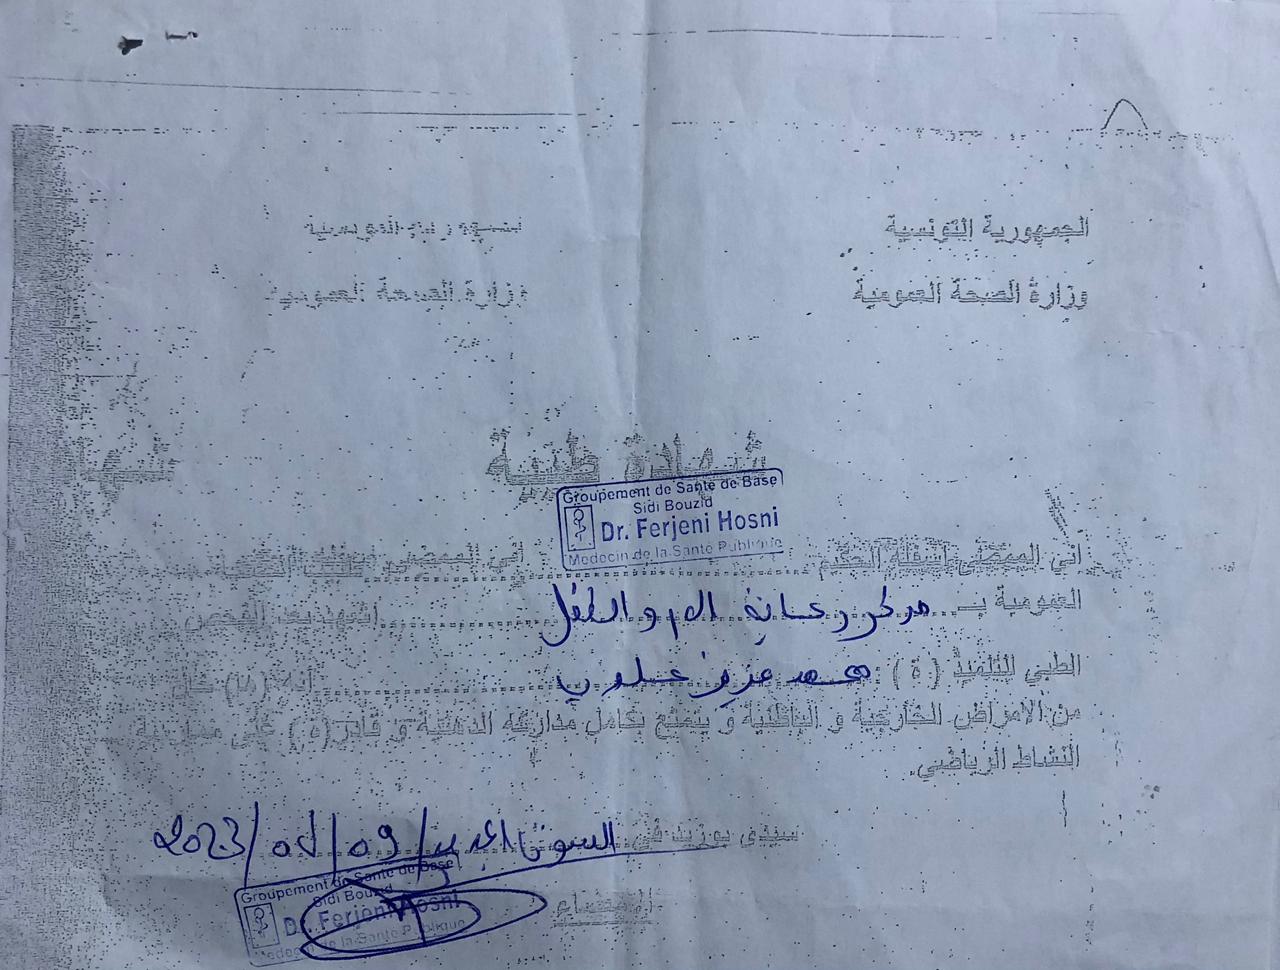 الجمهورية التونسية
وزارة الصحة العمومية
وزارة الصحة العمومية
شهادة طبية
Groupement de Santé de Base
Sidi Bouzid
Dr. Ferjeni Hosni
Medecin de la Santé Publique
اني الممضي اسفله الحكيم
اني الممضي
العمومية بـ مركز رعاية الام والطفل
الطبي للتلميذ ( ة ) : محمد عزيز
من الامراض الخارجية و الباطنية و يتمتع بكامل مداركه الذهنية و قادر(ة) على ممارسة
النشاط الرياضي.
سيدي بوزيد في السوق الجديد / 09 / 05 / 2023
الامضاء
Groupement de Santé de Base
Sidi Bouzid
Dr. Ferjeni Hosni
Medecin de la Santé Publique